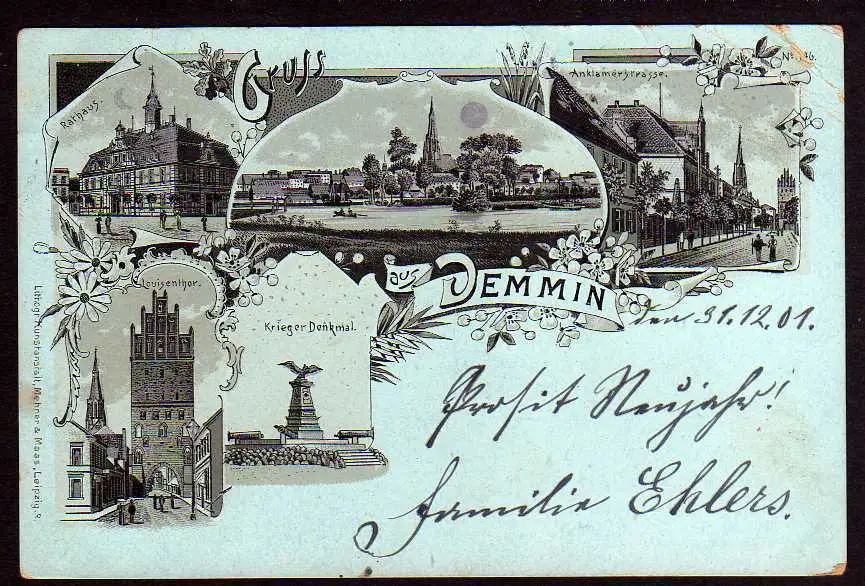 Gruss
aus DEMMIN
Rathaus.
Anklamerstrasse.
Louisenthor.
Krieger Denkmal.
den 31.12.01.
Prosit Neujahr!
Familie Ehlers.
Lithogr. Kunstanstalt, Mehner & Maas, Leipzig.